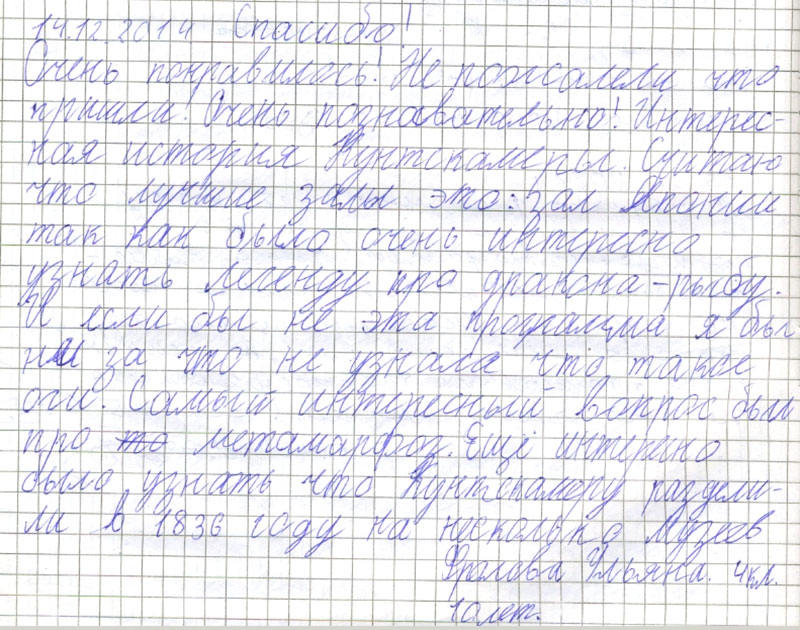 14.12.2014 Спасибо!
Очень понравилось! Не пожалели что
пришли! Очень познавательно! Интерес-
ная история Кунтскамеры. Считаю
что лучшие залы это: зал Японии
так как было очень интересно
узнать легенду про дракона-рыбу.
И если бы не эта программа я бы
ни за что не узнала что такое
оги. Самый интересный вопрос был
про то метаморфоз. Ещё интересно
было узнать что Кунтскамеру раздели-
ли в 1836 году на несколько музеев
Фролова Ульяна. 4 кл.
10 лет.